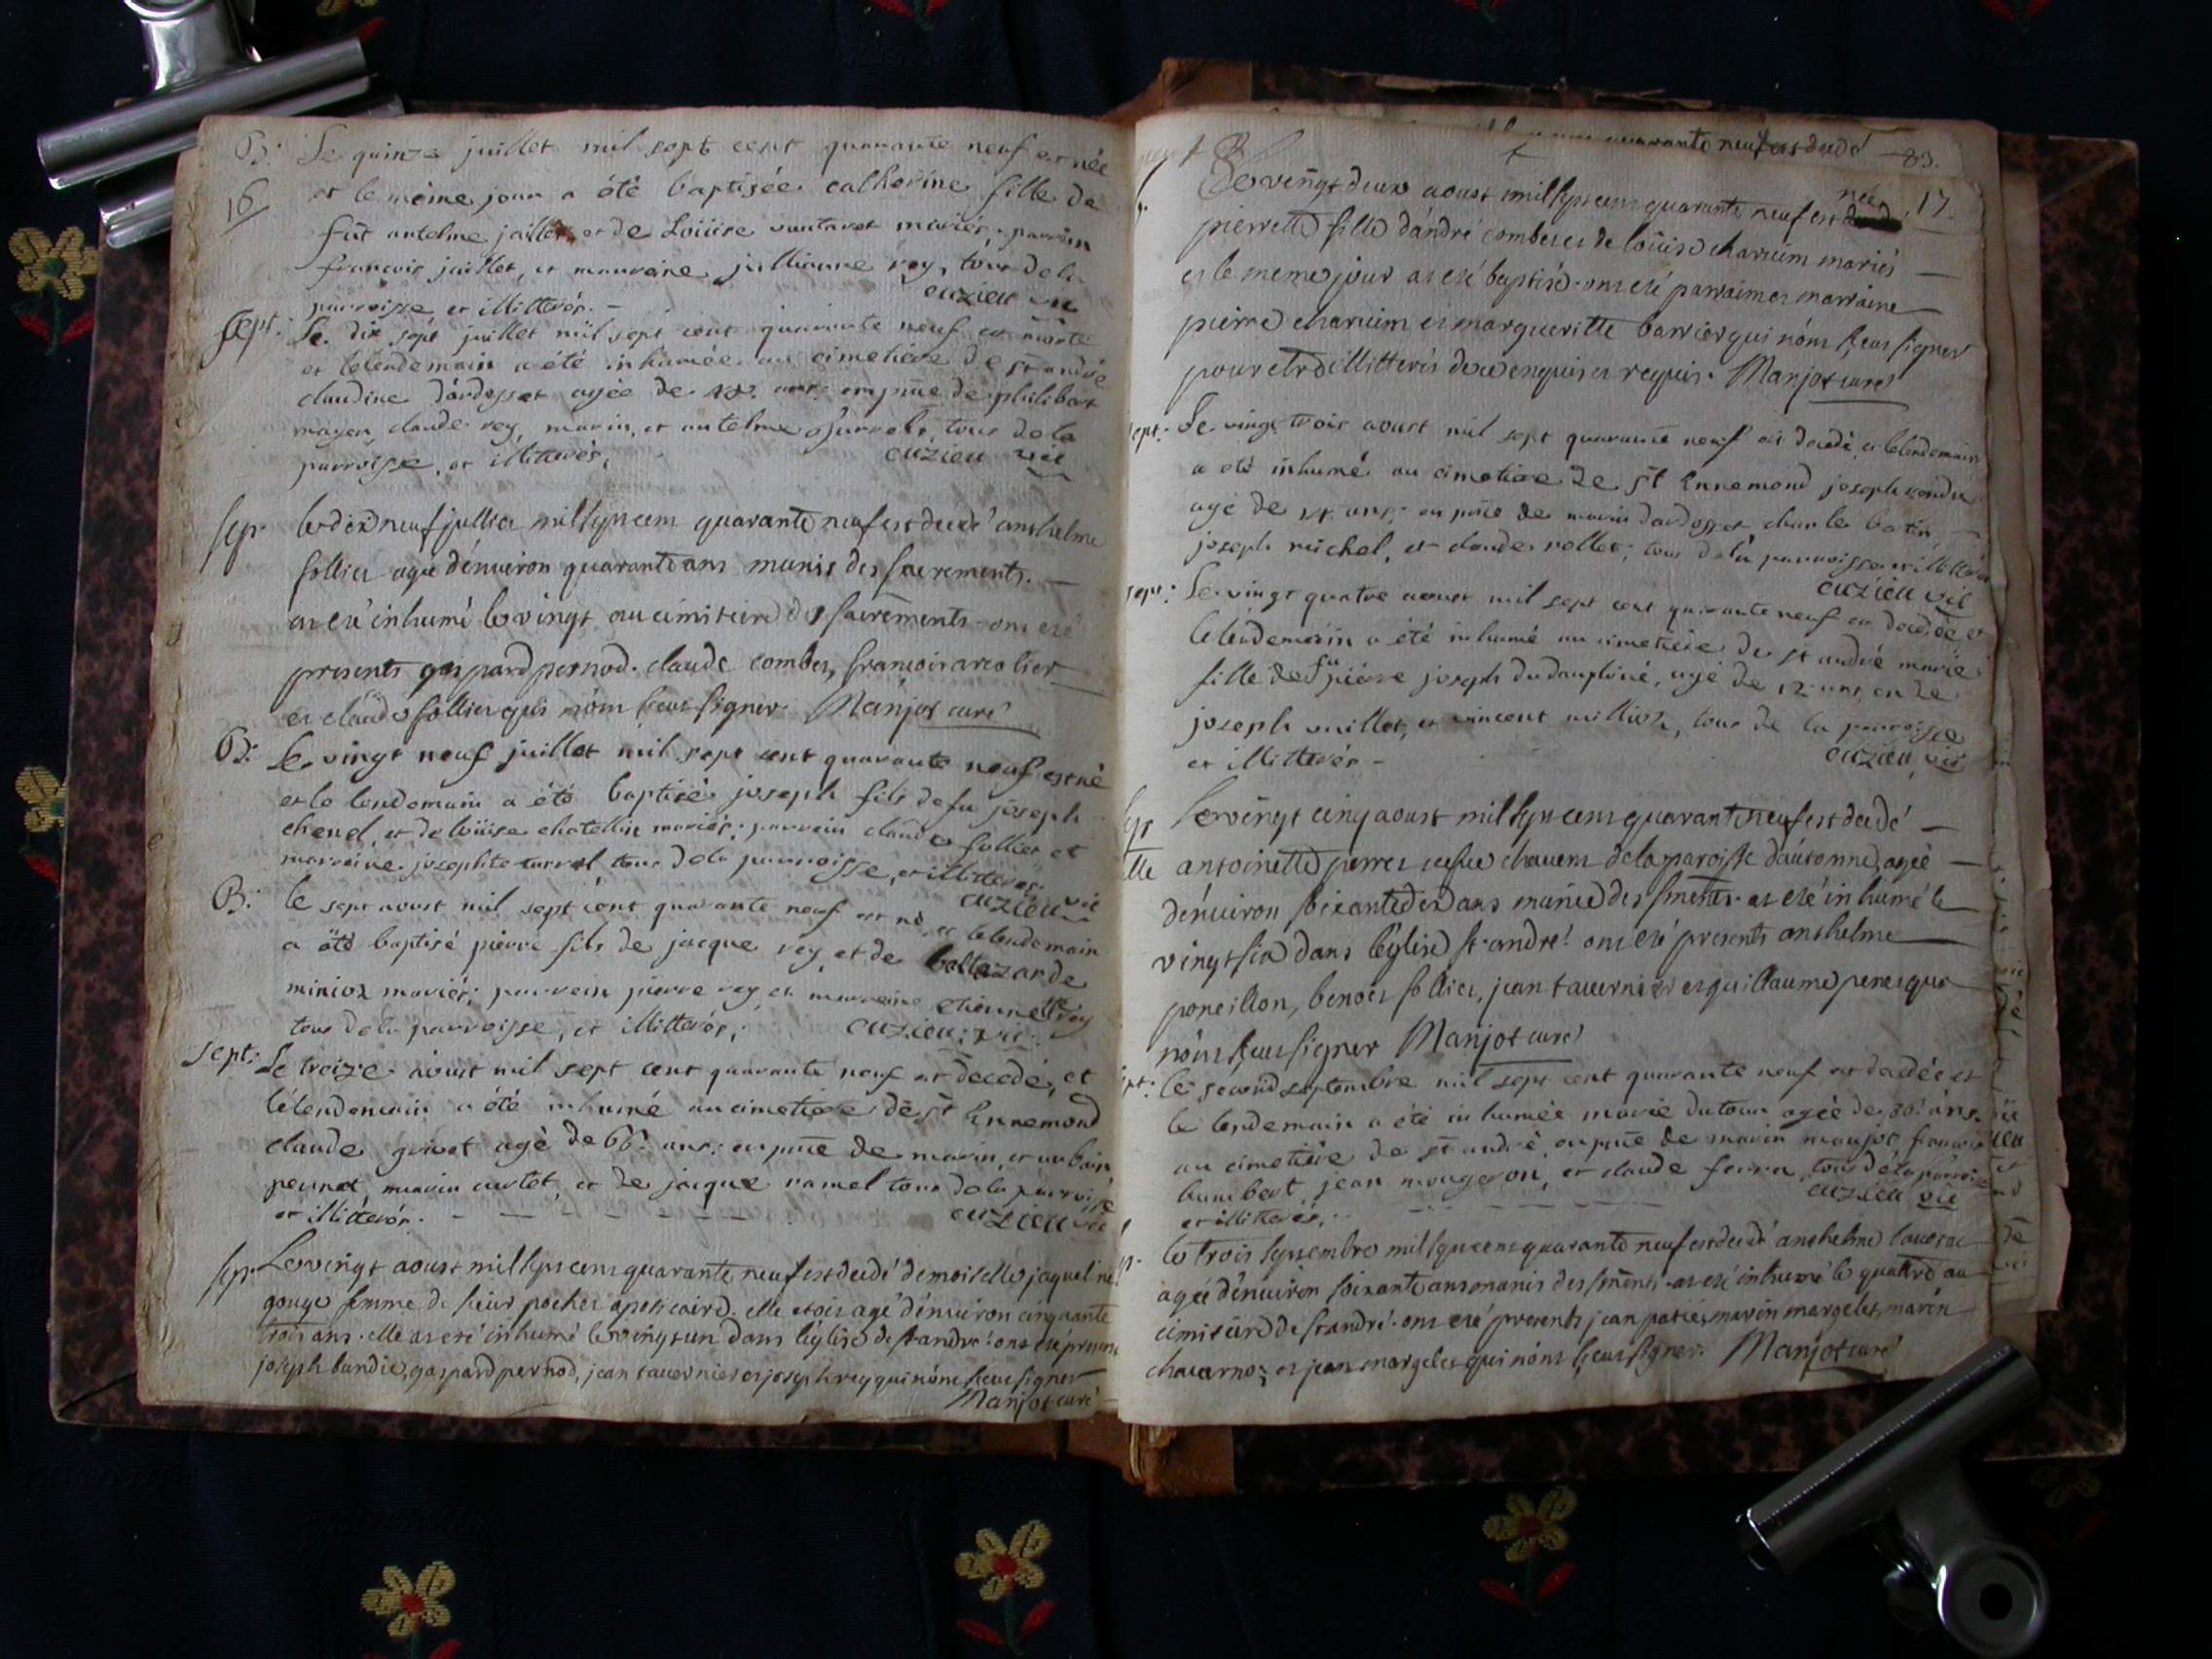 B. Le quinze juillet mil sept cent quarante neuf est née
16 et le même jour a été baptisée catherine fille de
feüt antelme jaillet et de Loüise mariés, parrein
francois jaillet, et marraine jullienne rey, tous de la
parroisse et illitterés. — cuzieu vic
sept. Le dix sept juillet mil sept cent quarante neuf est morte
et lelendemain a été inhumée au cimetiere de st andré
claudine dardesset agée de ans en pñce de philibert
mayen, claude rey, marin, et antelme tous de la
parroisse, et illitterés; cuzieu vic
sep. le dix neuf jullies mil sept cens quarante neuf est decedé anthelme
follies agé dénuiron quarante ans munis des sacrements. —
as esté inhumé le vingt au cimitiere des sacrements ont esté
presents gaspard pernod. claude combes, francois
et claude follies qui nónt sceus signer Manjot curé
B. Le vingt neuf juillet mil sept cent quarante neuf est né
et le lendemain a été baptisé joseph fils de fu joseph
chenel, et de loüise chatellin mariés; parrein claude follies et
marreine josephte tous dela parroisse, et illitterés. cuzieu vic
B. le sept aoust mil sept cent quarante neuf est né, et lelendemain
a été baptisé pierre fils de jacque rey, et de baltazarde
mariés; parrein pierre rey et marreine etiennette rey
tous dela parroisse, et illitterés; cuzieu; vic.
sept. Le treize aoust mil sept cent quarante neuf est decedé, et
lelendemain a été inhumé au cimetiere de st Ennemond
claude grivet agé de 66. ans; en pñce de marin, et urbain
peunet, marin curtet, et de jacque ramel tous dela parroisse
et illitterés. — — — — — — cuzieu vic
sep. Le vingt aoust mil sept cens quarante neuf est decedé demoiselle jaqueline
gouge femme de sieur pochet apoticaire. elle etois agé dénuiron cinquante
trois ans. elle as esté inhumé le vingt un dans léglise de st andre! ont esté presents
joseph bandie, gaspard pernod, jean tauernies et joseph rey qui nónt sceus signer
Manjot curé
quarante neuf est decedé 83.
née 17.
Le vingt deux aoust mil sept cens quarante neuf est
pierrette fille dándré combes et de loüise charuim mariés —
et le meme jour as esté baptisé. ont esté parrain et marraine
pierre charuim et margueritte barrier qui nónt sceus signer
pour etre illitterés de ce enquis et requis. Manjot curé
sept. Le vingt trois aoust mil sept quarante neuf est decedé, et lelendemain
a été inhumé au cimetiere de st Ennemond joseph
agé de ans; en pñce de marin dardesset, charle
joseph michel, et claude rollet; tous dela parroisse et illitterés
cuzieu vic
sept. Le vingt quatre aoust mil sept cent quarante neuf est decedée et
le lendemain a été inhumé au cimetiere de st andré marie
fille de fu pierre joseph du dauphiné, agé de 12. ans, en de
joseph uuillet, et vincent millioz, tous de la parroisse
et illitterés — cuzieu, vic
Le vingt cinq aoust mil sept cens quarante neuf est decedé —
antoinette perret chauent de la paroisse dautonne, agée —
dénuiron soixante dix ans munie des sments. as esté inhumé le
vingt six dans léglise st. andre! ont esté presents anshelme —
poncillon, benois follies, jean tauernier et guillaume peres que
nónt sceus signer Manjot curé
sept. le second septembre mil sept cent quarante neuf est decedée et
le lendemain a été inhumée marie dutour agée de 30. ans.
au cimetiere de st andré, en pñce de marin manjot, francois
humbert, jean mougeron, et claude ferra, tous dela parroisse
et illitterés; — — — — — cuzieu vic
le trois septembre mil sept cens quarante neuf est decedé anthelme
agée dénuiron soixante ans munis des sments. as esté inhumé le quattre au
cimitiere de st andré. ont esté presents jean marin margeles, marin
chauarnoz et jean margeles qui nónt sceus signer. Manjot curé